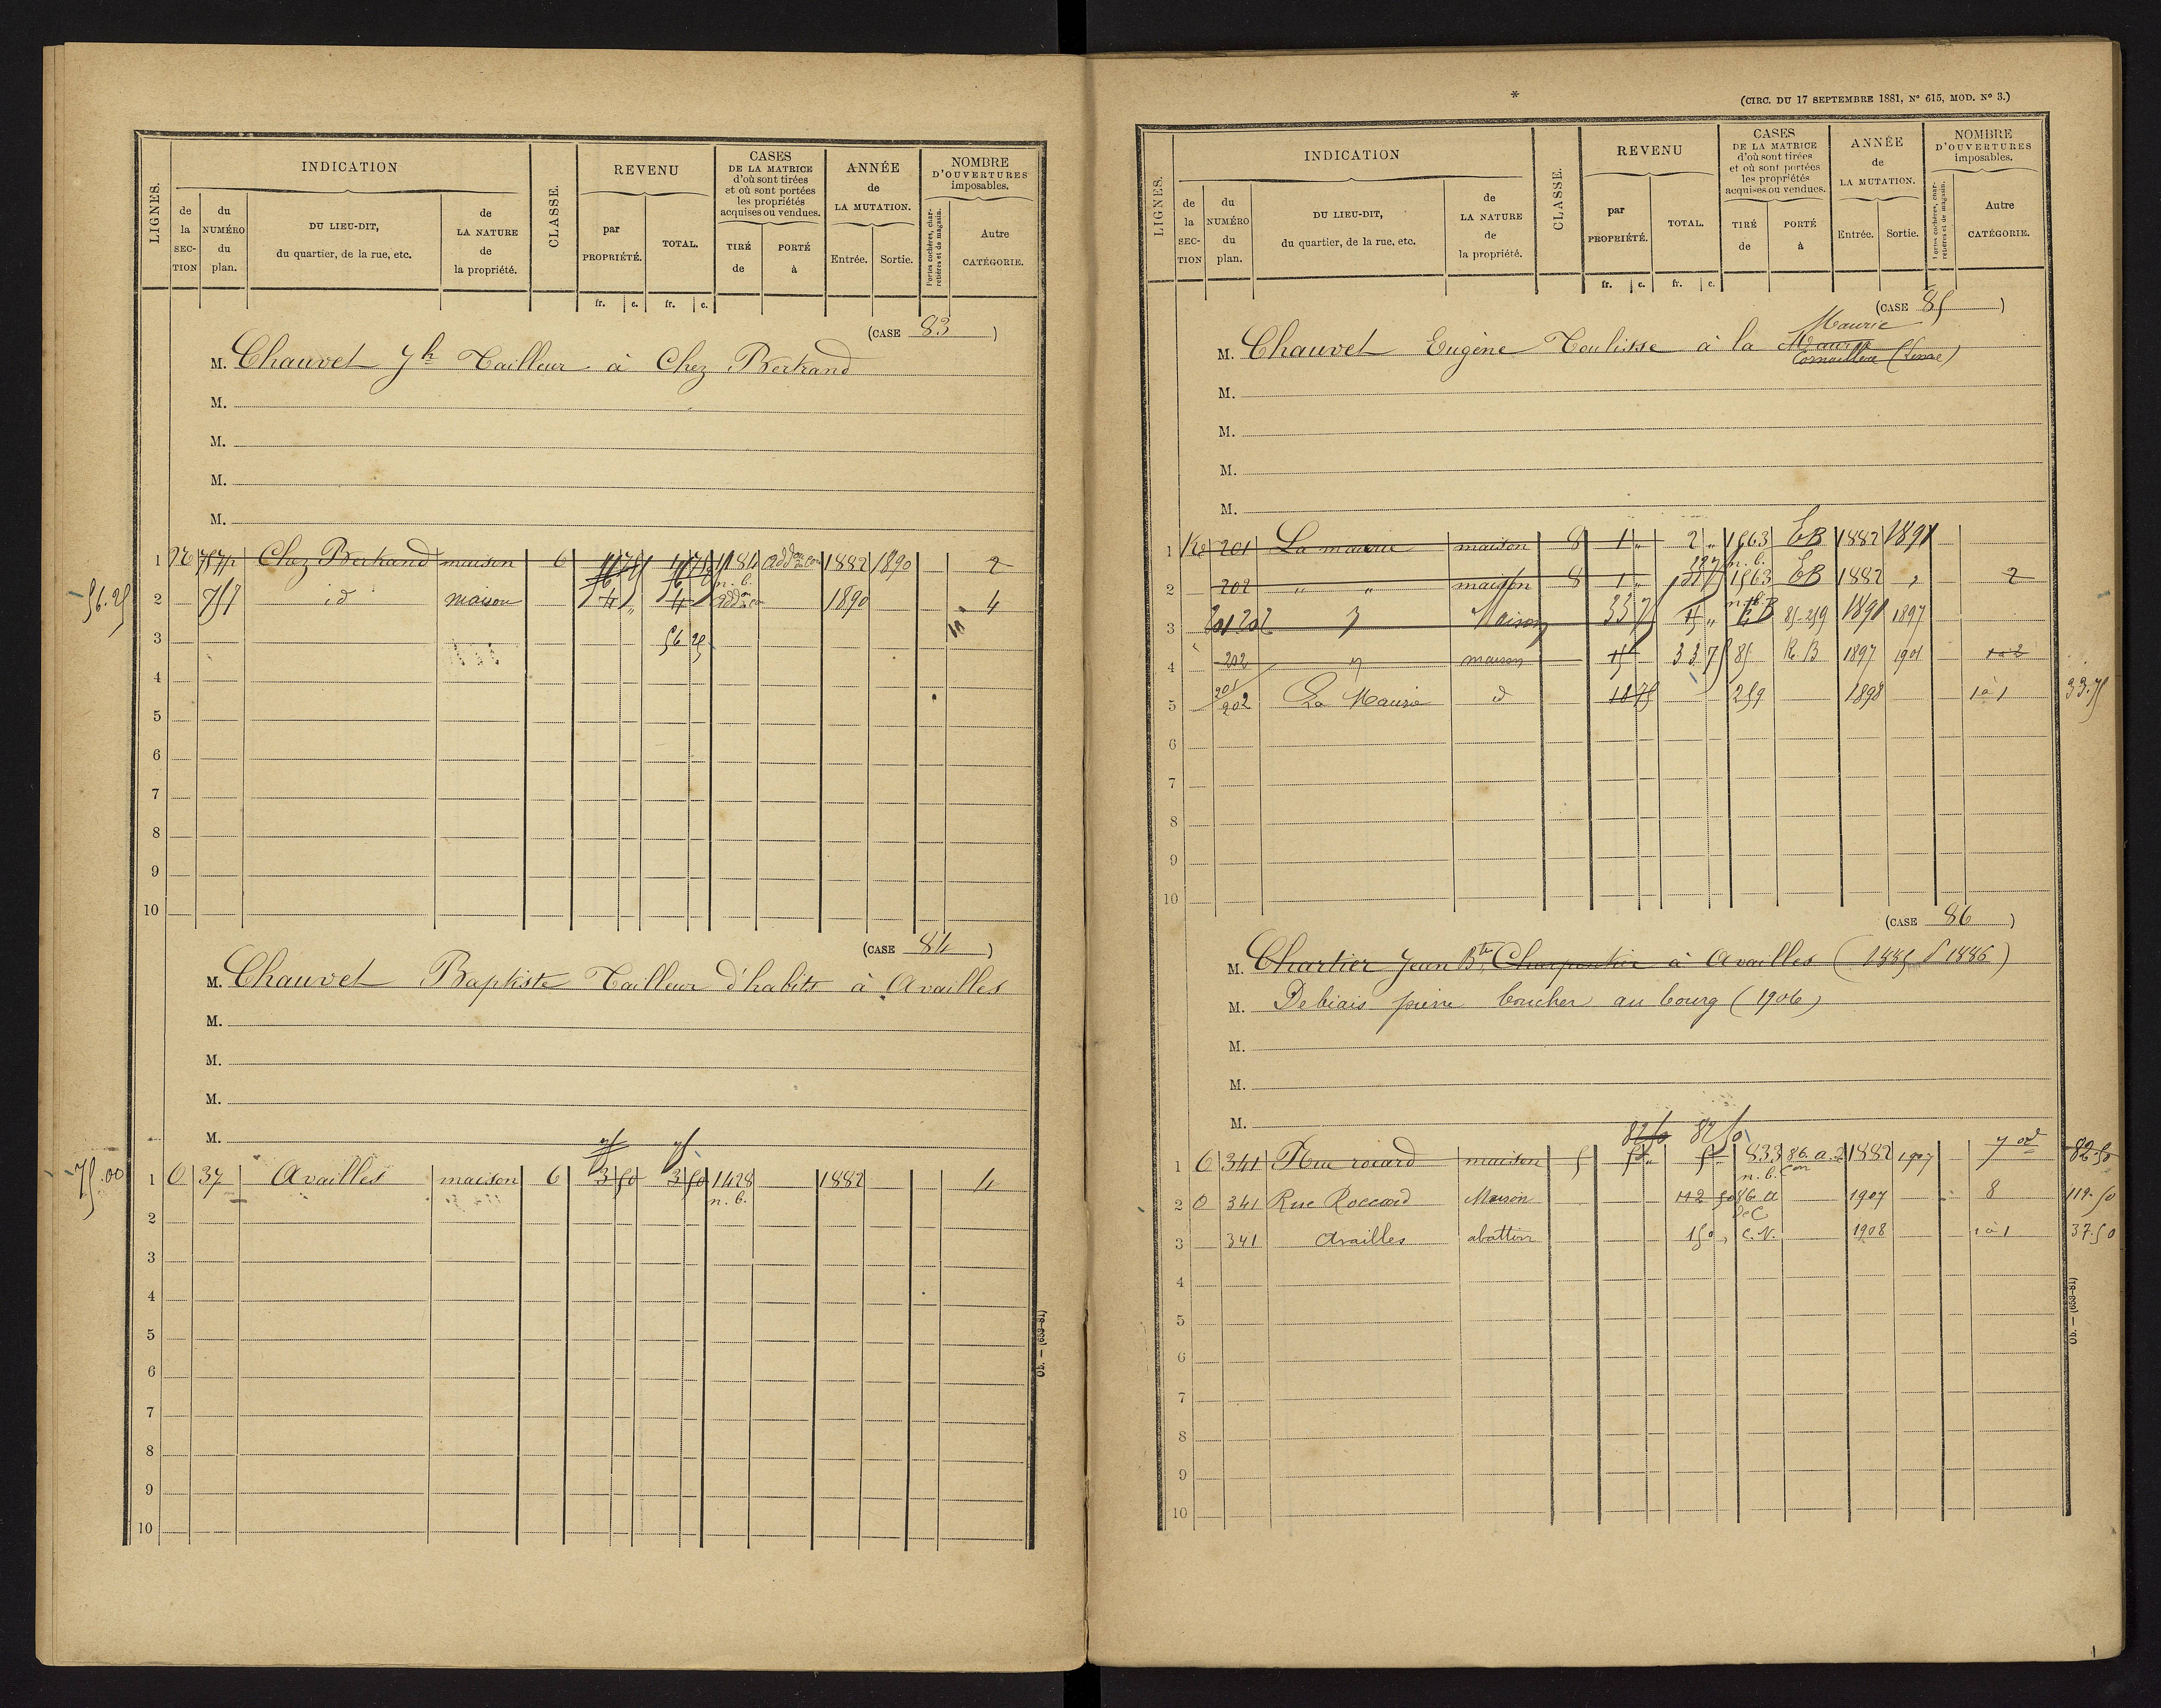 LIGNES.
INDICATION
de la SECTION
du NUMÉRO du plan.
DU LIEU-DIT, du quartier, de la rue, etc.
de LA NATURE de la propriété.
CLASSE.
REVENU
par PROPRIÉTÉ.
TOTAL.
CASES DE LA MATRICE d'où sont tirées et où sont portées les propriétés acquises ou vendues.
TIRÉ de
PORTÉ à
ANNÉE de LA MUTATION.
Entrée.
Sortie.
NOMBRE D'OUVERTURES imposables.
Portes cochères, charretières et de magasin.
Autre CATÉGORIE.
fr. c. fr. c.
(CASE 83)
M. Chauvet Jh Tailleur à Chez Bertrand
M.
M.
M.
M.
1 757p Chez Bertrand maison 6 1184 1882 1890 2
n. b.
56.25 2 757 id maison 4 4 1890 4
3 56 25
4
5
6
7
8
9
10
(CASE 84)
M. Chauvet Baptiste Tailleur d'habits à Availles
M.
M.
M.
M.
75 75
75.00 1 O 37 Availles maison 6 3 50 3 50 1428 1882 4
n. b.
2
3
4
5
6
7
8
9
10
Ob. — (653-81)
*
(CIRC. DU 17 SEPTEMBRE 1881, N° 615, MOD. N° 3.)
LIGNES.
INDICATION
de la SECTION
du NUMÉRO du plan.
DU LIEU-DIT, du quartier, de la rue, etc.
de LA NATURE de la propriété.
CLASSE.
REVENU
par PROPRIÉTÉ.
TOTAL.
CASES DE LA MATRICE d'où sont tirées et où sont portées les propriétés acquises ou vendues.
TIRÉ de
PORTÉ à
ANNÉE de LA MUTATION.
Entrée.
Sortie.
NOMBRE D'OUVERTURES imposables.
Portes cochères, charretières et de magasin.
Autre CATÉGORIE.
fr. c. fr. c.
(CASE 85)
Maurie
M. Chauvet Eugène à la
M.
M.
M.
M.
1 201 La maurie maison 8 1 " 2 " 1563 EB 1882 1891
n. b.
2 202 " " maison 8 1 " 1563 EB 1882 " 2
3 201 202 " Maison 33 75 15 " EB 85-259 1891 1897
4 202 " maison 15 33 75 85 1897 1901 1 à 2
5 201/202 La Maurie id 18 75 259 1898 1 à 1 33.75
6
7
8
9
10
(CASE 86)
M. Chartier Jean Bte Charpentier à Availles (1885 S 1886)
M. Debiais pierre boucher au bourg (1906)
M.
M.
M.
82 50 82 50
1 O 341 Rue rocard maison 5 5 " 5 " 833 86 a. 2 1882 1907 7 od 82.50
n. b. con
2 O 341 Rue Roccard Maison 112 50 86 a 1907 8 112.50
de C
3 341 Availles abattoir 150 " C.N. 1908 1 à 1 37.50
4
5
6
7
8
9
10
Ob. — (653-81)